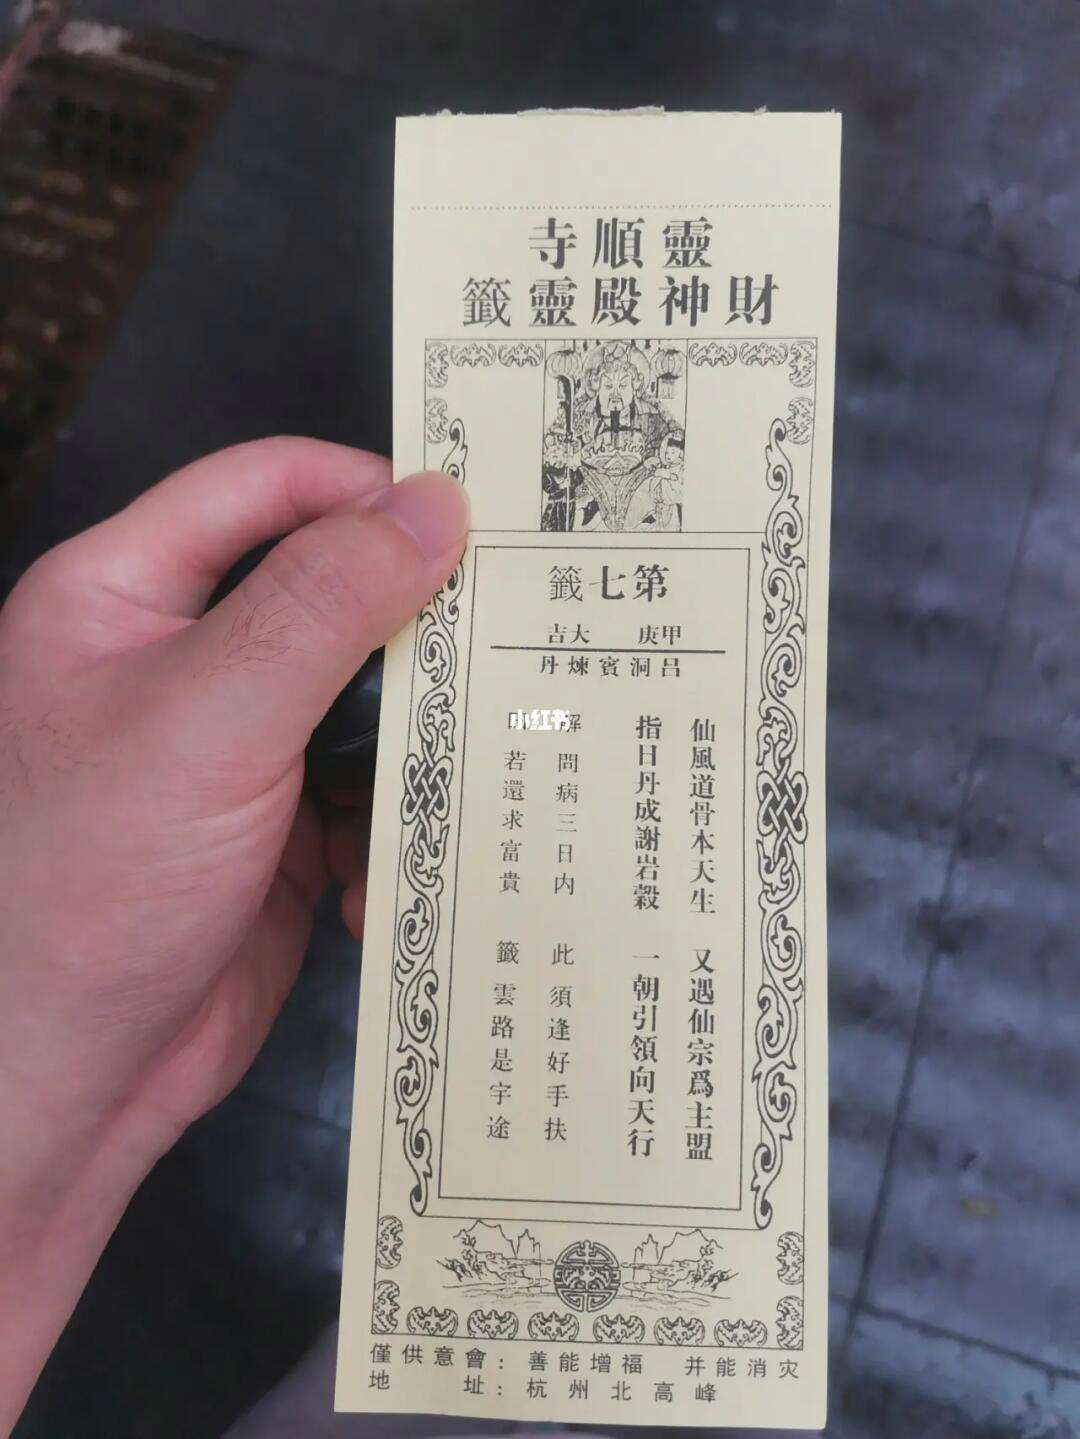 靈順寺
財神殿靈籤
第七籤
甲庚 大吉
吕洞賓煉丹
仙風道骨本天生 又遇仙宗爲主盟
指日丹成謝岩穀 一朝引領向天行
解 問病三日内 此 須逢好手扶
若還求富貴 籤 雲路是宇途
小红书
僅供意會：善能增福 并能消灾
地址：杭州北高峰